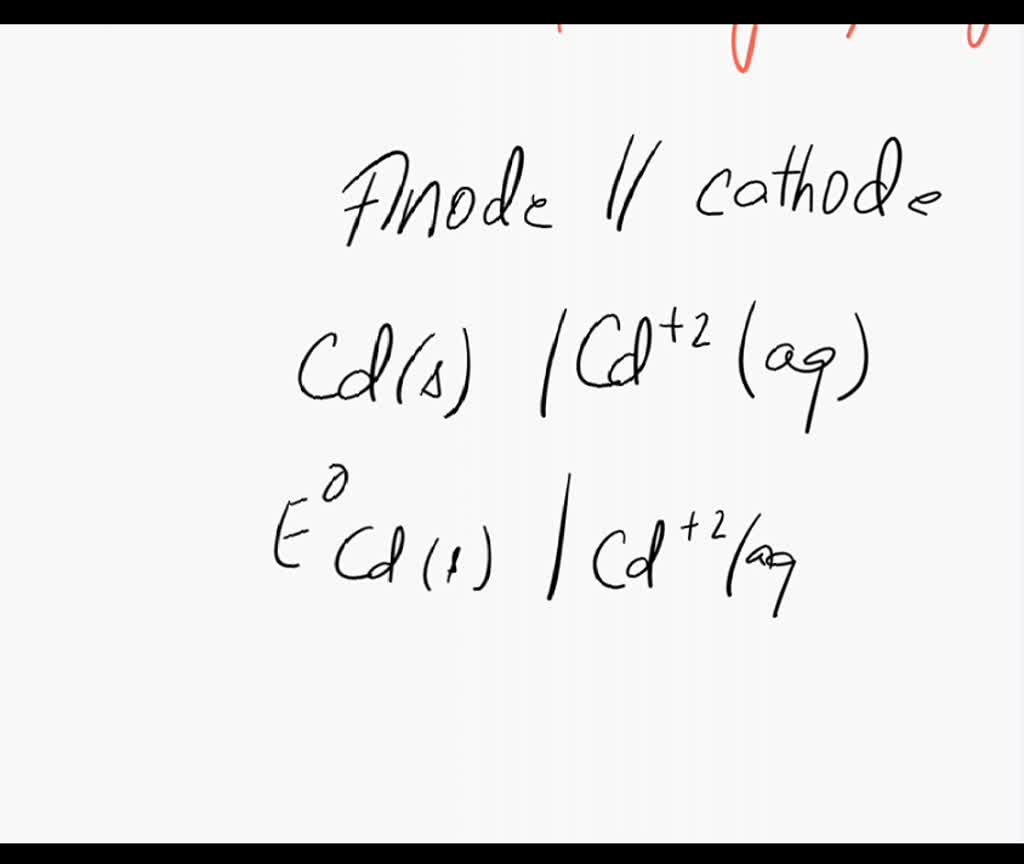 Anode // cathode
Cd(s) / Cd⁺² (aq)
E⁰ Cd (s) / Cd⁺² / aq